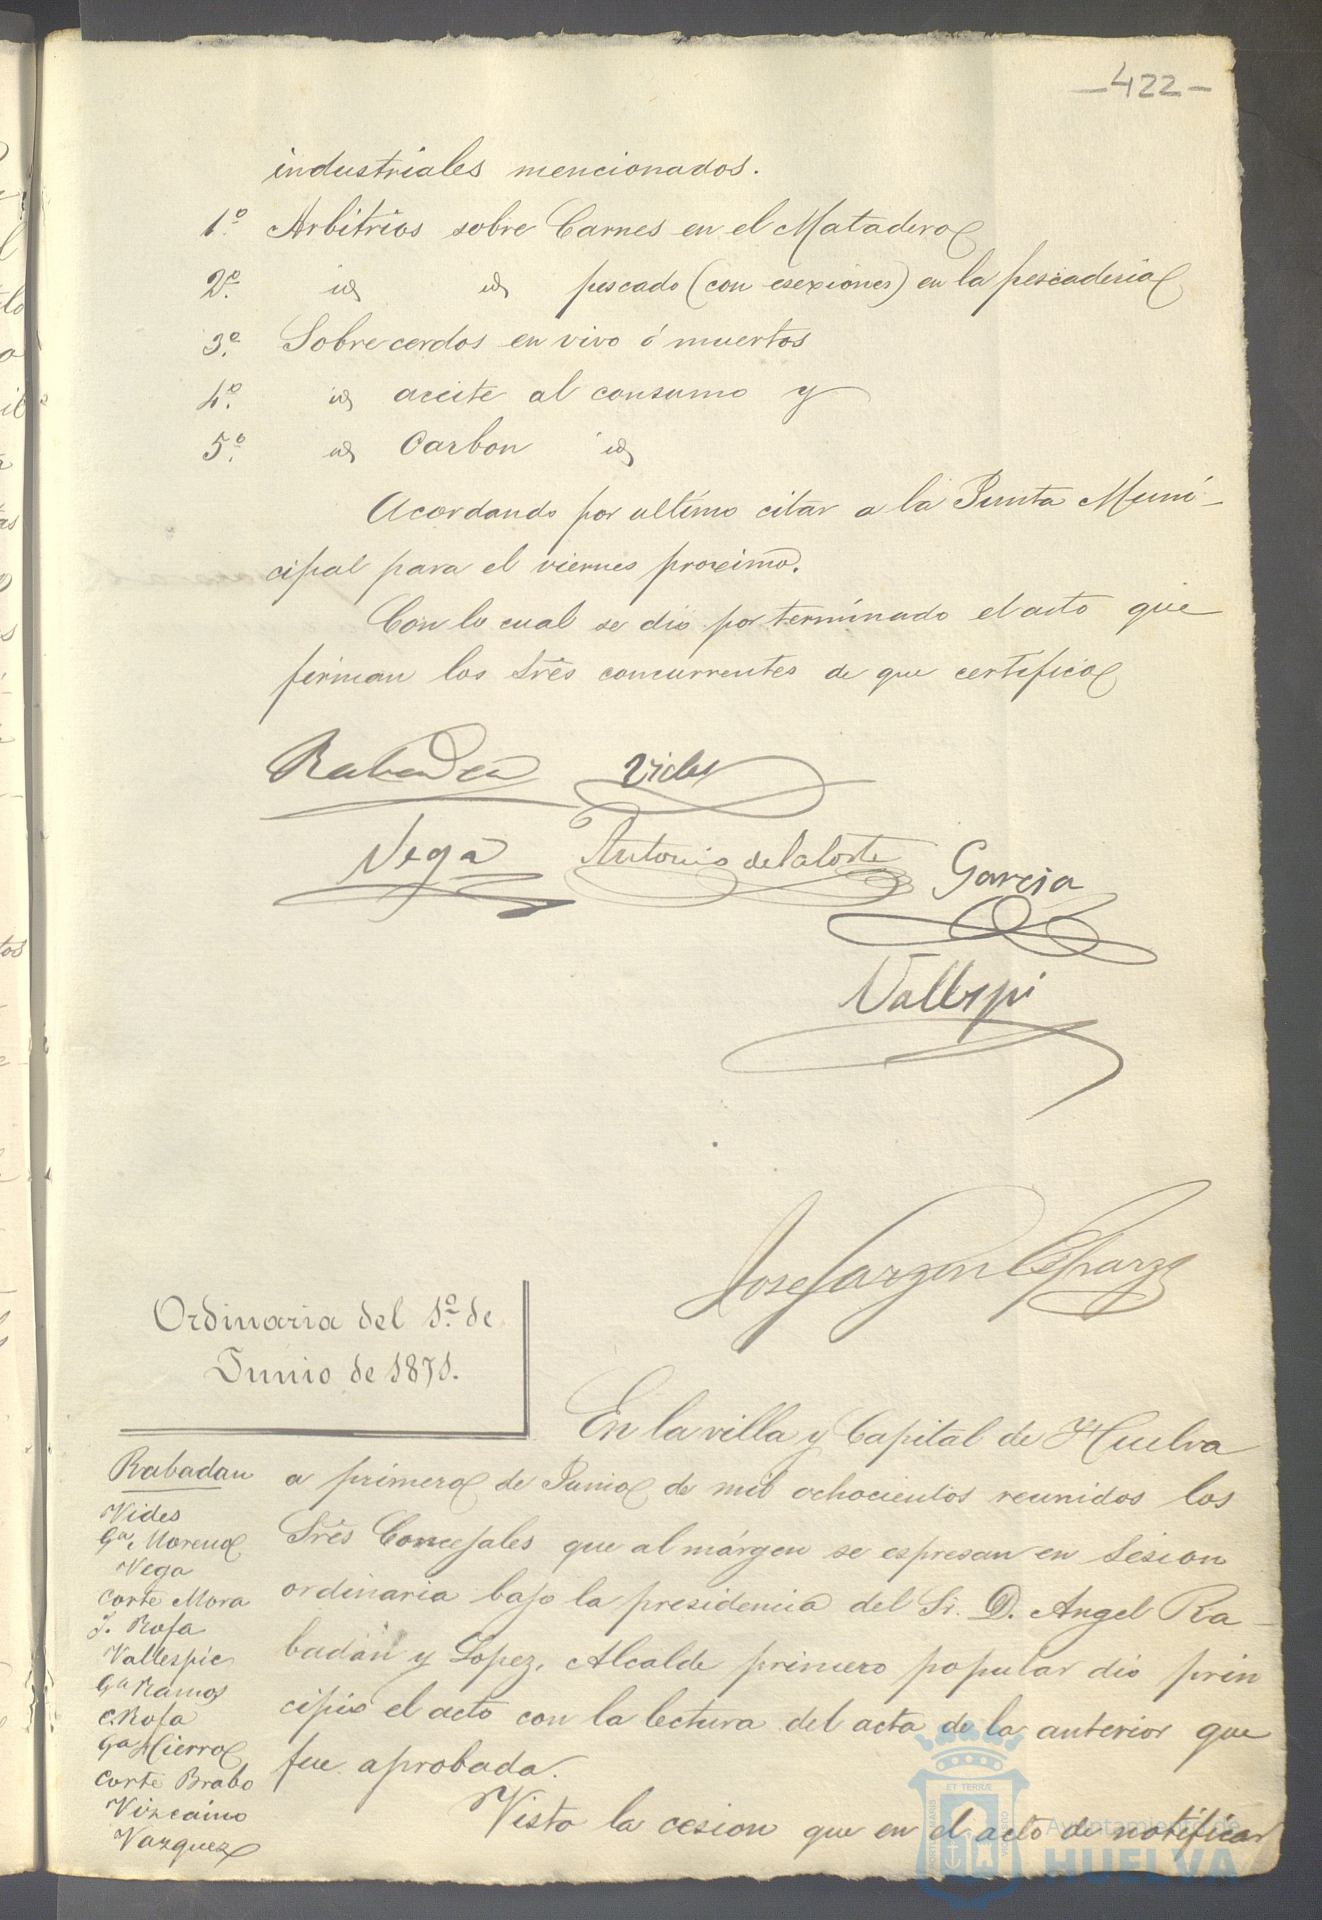 -422-
industriales mencionados.
1º Arbitrios sobre Carnes en el Matadero
2º. id id pescado (con esexiones) en la pescaderia
3º. Sobre cerdos en vivo ó muertos
4º. id aceite al consumo y
5º. id Carbon id
Acordando por ultimo citar a la Junta Muni-
cipal para el viernes proximo.
Con lo cual se dió por terminado el acto que
firman los Sres concurrentes de que certifico
Rabadan Vides
Vega Antonio de la Corte Garcia
Vallespi
Jose Garzon Esparza
Ordinaria del 1º. de
Junio de 1871.
En la villa y Capital de Huelva
a primero de Junio de mil ochocientos reunidos los
Sres Concejales que al márgen se espresan en Sesion
ordinaria bajo la presidencia del Sr. D. Angel Ra-
badán y Lopez, Alcalde primero popular dió prin
cipio el acto con la lectura del acta de la anterior que
fue aprobada.
Visto la cesion que en el acto de notificar
Rabadan
Vides
Gª. Moreno
Vega
Corte Mora
J. Rofa
Vallespic
Gª Ramos
C. Rofa
Gª Hierro
Corte Brabo
Vizcaino
Vazquez
ET TERRÆ
PORTUS MARIS
CUSTODIA
Ayuntamiento de
HUELVA